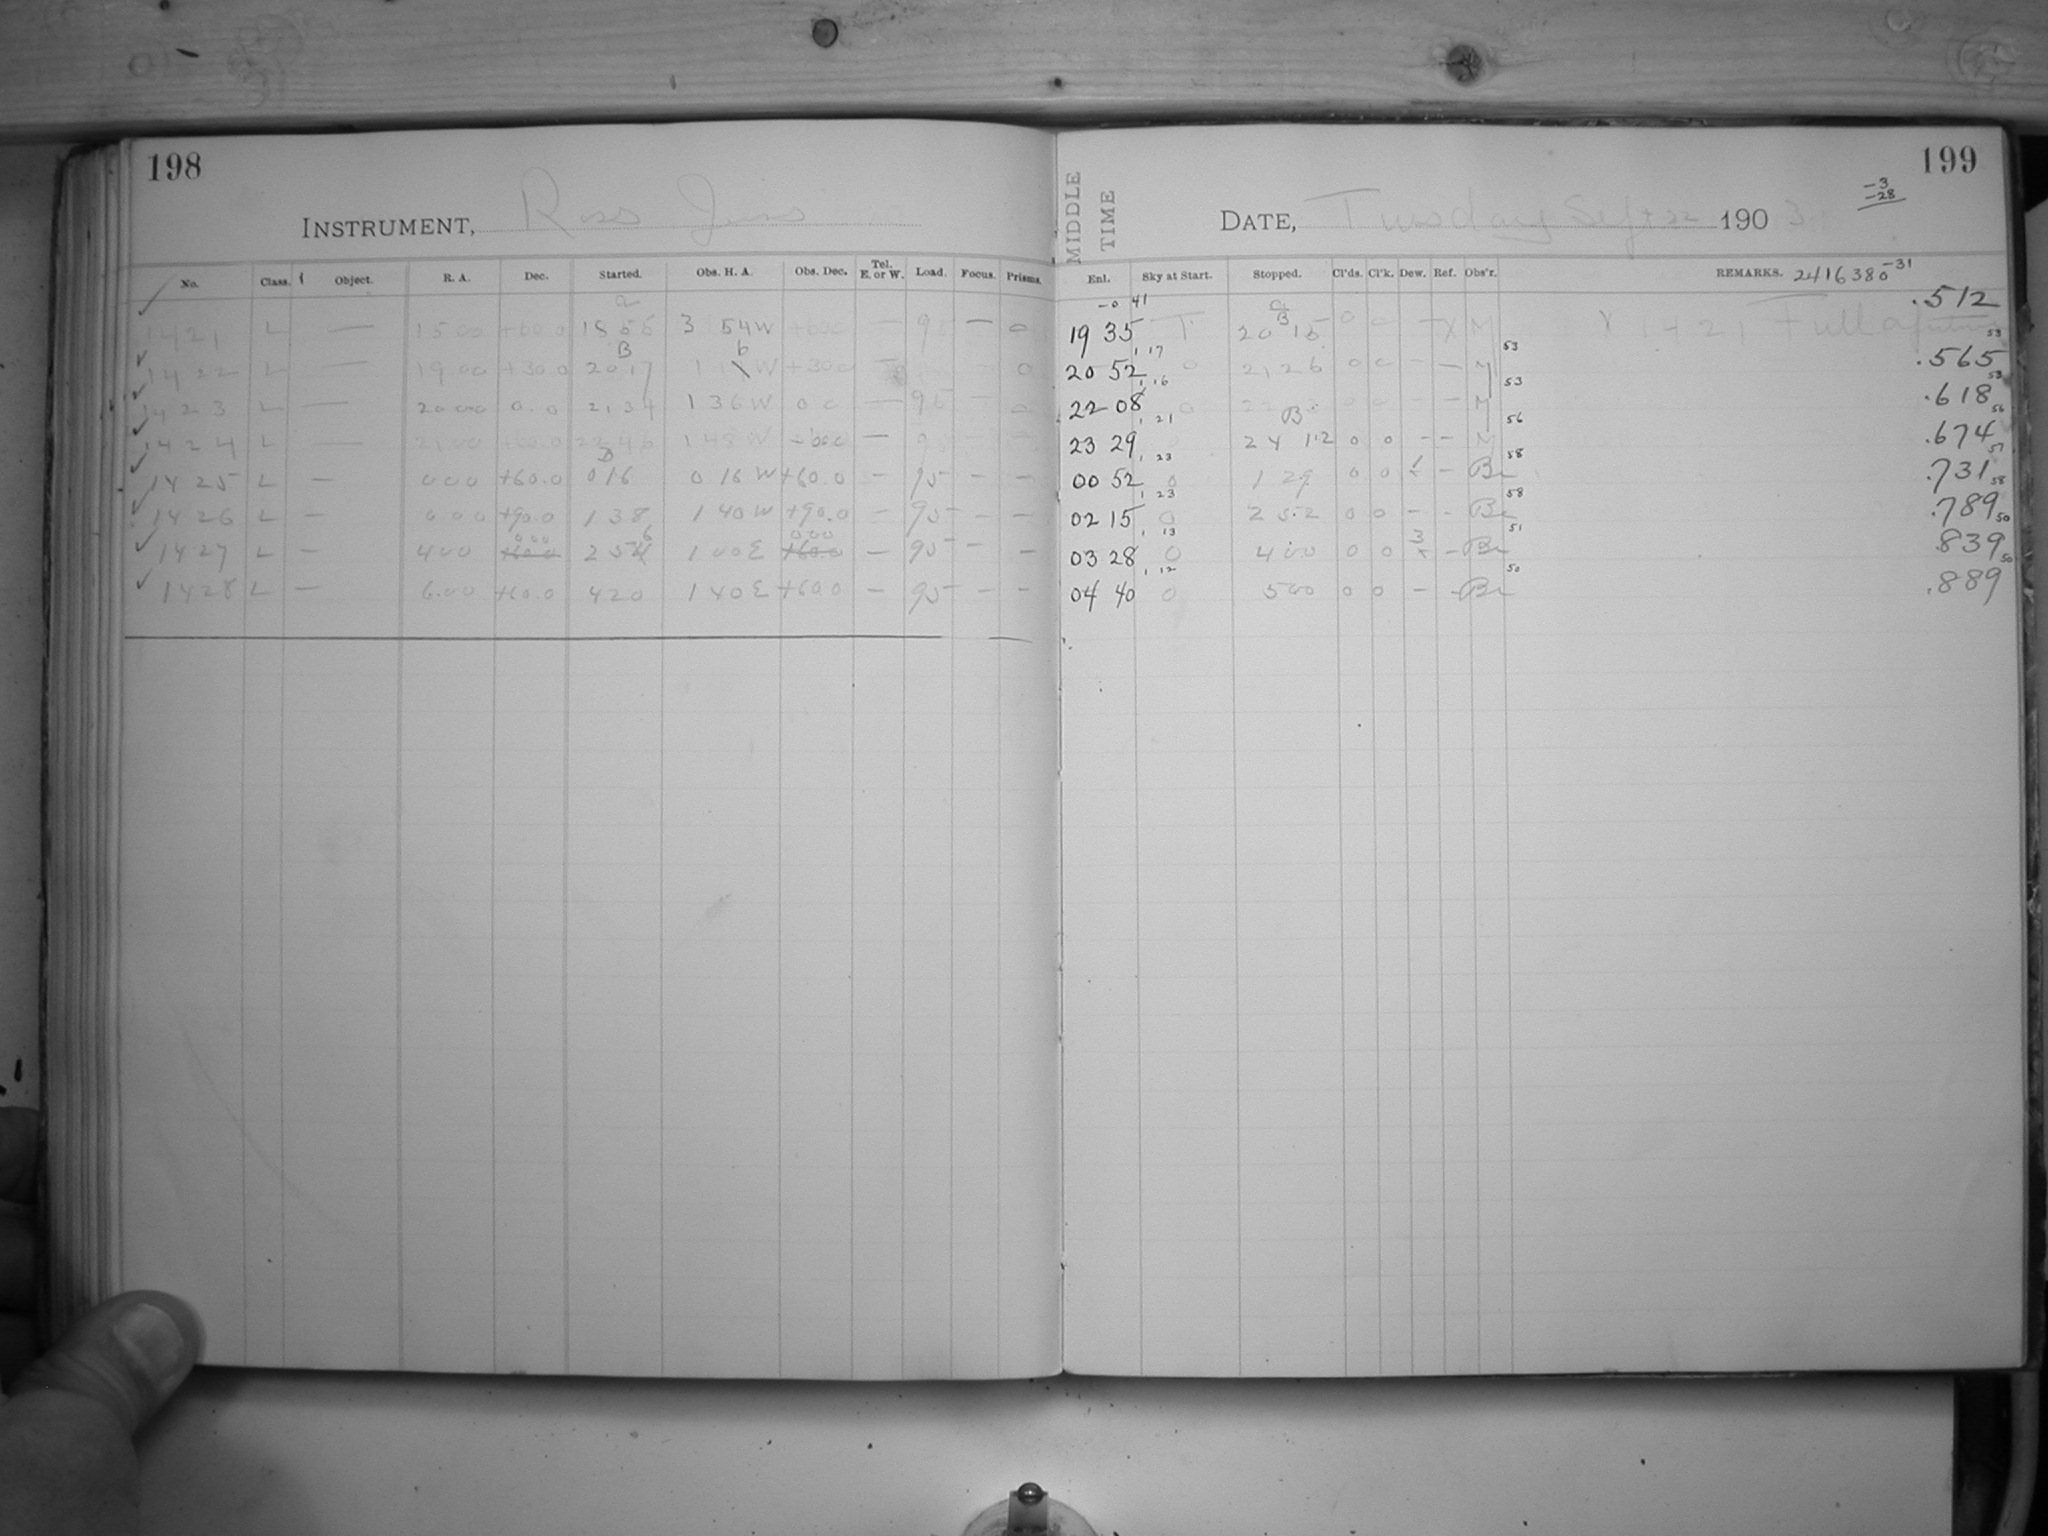 198
INSTRUMENT, Ross
No. Class. Object. R. A. Dec. Started. Obs. H. A. Obs. Dec. Tel. E. or W. Load. Focus. Prisms.
1421 L — 15 00 +60.0 18 55 3 54 W +60 0 — 95 — 0
1422 L — 19 00 +30.0 20 17 W +30 0 0
1423 L — 20 00 0.0 21 34 1 36 W 0 0 — 95 — 0
1424 L — 21 00 +60.0 22 46 1 45 W +60 0 — — —
1425 L — 0 00 +60.0 0 16 0 16 W +60.0 — 95 — —
1426 L — 0 00 +90.0 1 38 1 40 W +90.0 — 95 — —
1427 L — 4 00 0 00 2 56 1 00 E 0 00 — 95 — —
1428 L — 6.00 +60.0 4 20 1 40 E +60 0 — 95 — —
199
-3
-28
MIDDLE TIME
DATE, Tuesday Sept 22 1903
Enl. Sky at Start. Stopped. Cl'ds. Cl'k. Dew. Ref. Obs'r. REMARKS. 2416380 -31
-0 41
19 35 T 20 15 0 0 — X M X 1421 Full .512
1 17 53 53
20 52 0 21 26 0 0 — — M .565
1 16 53 53
22 08 0 — — M .618
1 21 56 56
23 29 24 12 0 0 — — M .674
1 23 58 57
00 52 0 1 29 0 0 — Br .731
1 23 58 58
02 15 0 2 52 0 0 — - Br .789
1 13 51 50
03 28 0 4 00 0 0 - Br .839
1 12 50 50
04 40 0 5 00 0 0 — - Br .889